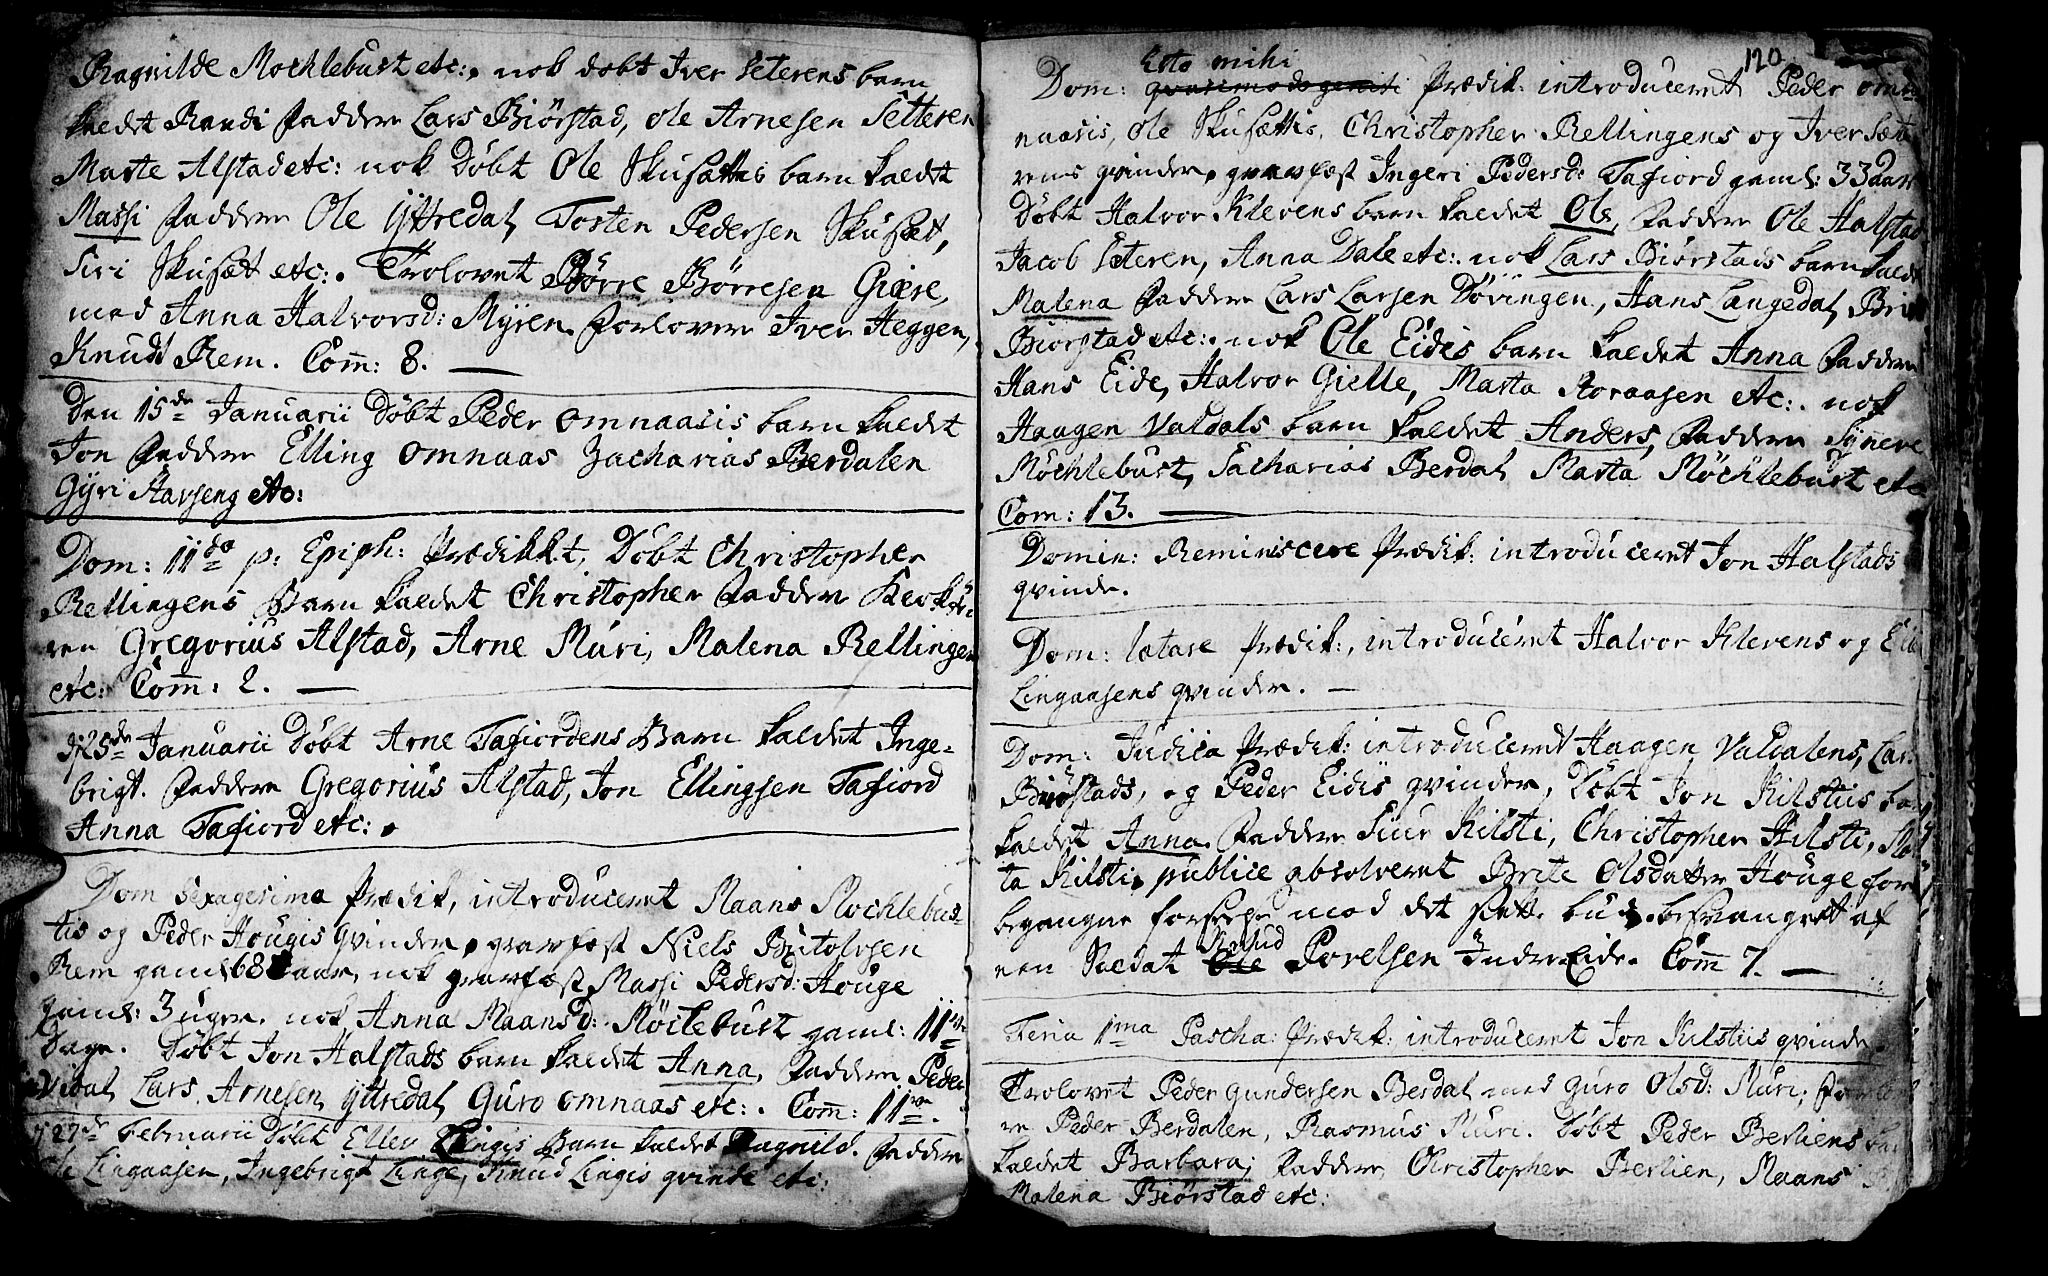 Ragnilde Mochlebust etc:, nok dobt Iver Seterens barn
kaldet Randi Faddere Lars Biörstad, Ole Arnesen Setteren
Marte Alstad etc: nok Döbt Ole Skusættis barn kaldet
Massi Faddere Ole Yttredal, Torsten Pedersen Skusæt,
Siri Skusæt etc:. Trolovet Börre Börresen Giære,
med Anna Halvorsd: Myren. Forlovere Iver Heggen,
Knudt Rem. Com̄: 8.
Den 15de Januarii Döbt Peder Omnaasis barn kaldet
Jon Faddere Elling Omnaas Zacharias Berdalen
Gÿri Havseng etc:
Dom: IIda p: Epiph: Prædikkt, Döbt Christopher
Rellingens Barn kaldet Christopher Faddere
Gregorius Alstad, Arne Muri, Malena Rellingen
etc: Com̄: 2.
25de Januarii Döbt Arne Tafiordens Barn kaldet Inge-
brigt. Faddere Gregorius Alstad, Jon Ellingsen Tafiord
Anna Tafiord etc:
Dom Sexagesima Prædik, introduceret Maans Mochlebus-
tis og Peder Hougis qvinder, gravfæst Niels Botolvsen
Rem gaml 68 aar, nok gravfæst Massi Pedersd: Houge
gaml: 3 uger. nok Anna Maansd: Möclebust gaml: 11
Dage. Döbt Jon Halstads barn kaldet Anna, Faddere Peder
Lars Arnesen Yttredal, Guro Omnaas etc:. Com̄: 11.
27de Februarii Döbt Ellev Lingis Barn kaldet Ragnild. Faddere
Lingaasen, Ingebrigt Linge, Knud Lingis qvinde etc:
120
Esto mihi
Dom: quasimodogeniti Prædik: introduceret Peder Om
naasis, Ole Skusættis, Christopher Rellingens og Iver Sæte
rens qvinder, gravfæst Ingeri Pedersd: Tafiord gaml: 33 aar
Döbt Halvor Klevens barn kaldet Ole, Faddere Ole Halstad
Jacob Seteren, Anna Dale etc: nok Lars Biörstads barn kaldt
Malena Faddere Lars Larsen Dövingen, Hans Langedal,
Biorstad etc:. nok Ole Eidis barn kaldet Anna Faddere
Hans Eide, Halvor Gielle, Marta Roraasen etc:. nok
Haagen Valdals barn kaldet Anders, Faddere Sÿnneve
Möchlebust, Sacharias Berdal, Marta Möchlebust etc
Com: 13.
Domin: Reminiscere Prædik: introduceret Jon Halstads
qvinde.
Dom: lætare Prædik:, introduceret Halvor Klevens og
Lingaasens qvinder.
Dom: Judica Prædik: introduceret Haagen Valdalens, Lars
Biörstads, og Peder Eidis qvinder, Döbt Jon Kilstiis ba
kaldet Anna. Faddere Siur Kilsti, Christopher Kilsti, Ma
ta Kilsti, publice absolveret Brite Olsdatter Houge for
begangne forseelse mod det siette bud. besvangret af
en Soldat Ole Knud Povelsen Indre Eide. Com̄ 7.
Feria 1ma Pascha: Prædik: introduceret Jon Kilstiis qvinde.
Trolovet Peder Gundersen Berdal med Guro Olsd: Muri, Forlo
re Peder Berdalen, Rasmus Muri. Döbt Peder Berliens ba
kaldet Barbara, Faddere, Christopher Berlien, Maans
Malena Biörstad etc: